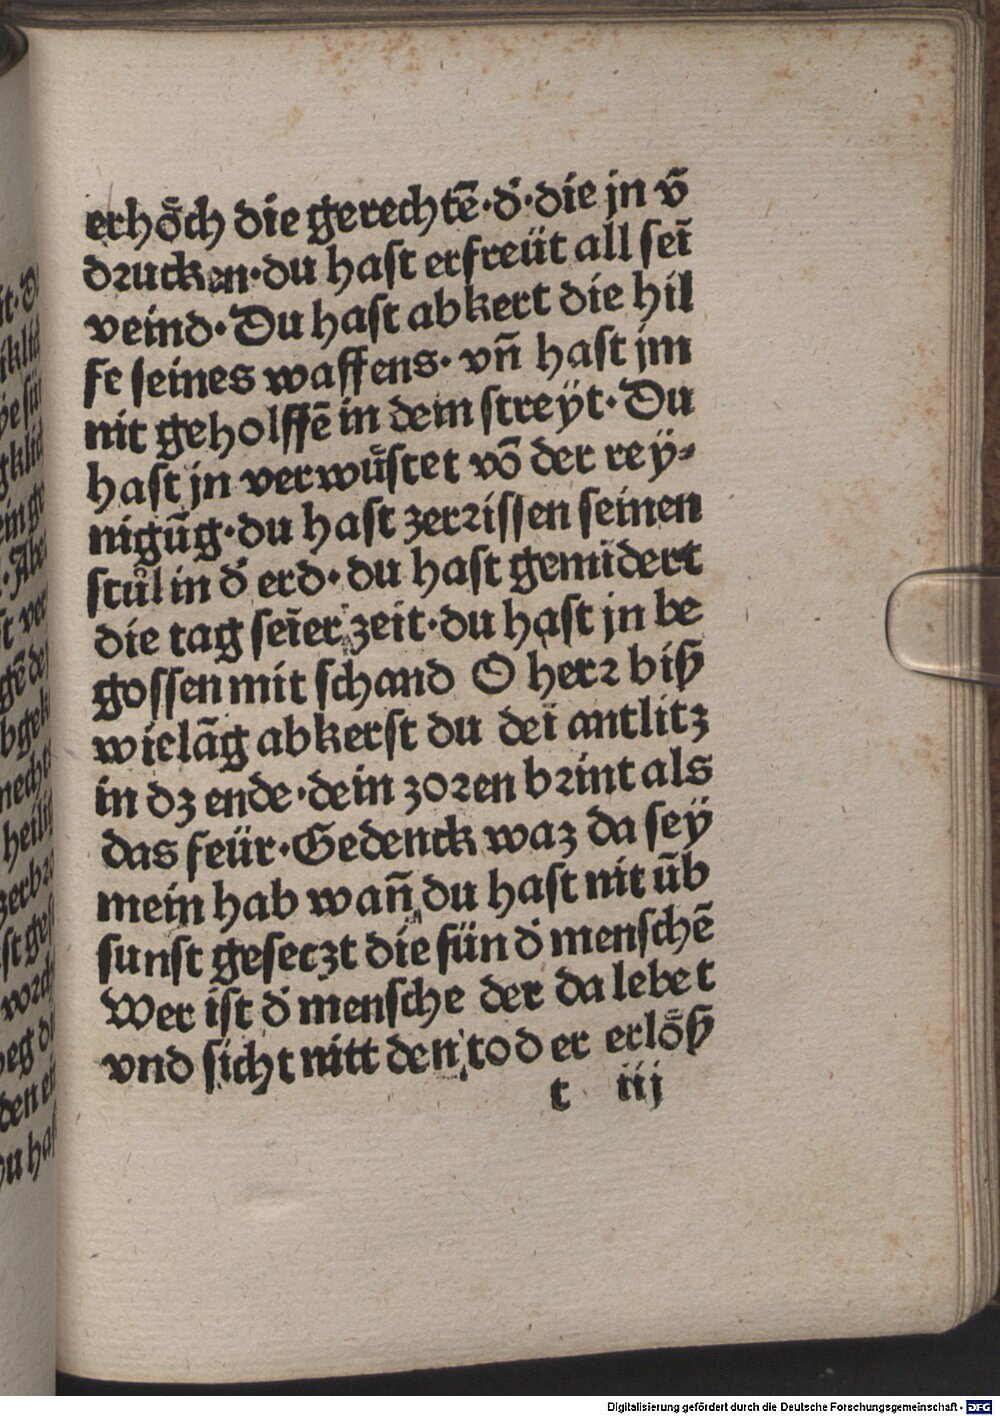 erhȫch die gerechtẽ·d̕·die jn v̄
drucken·du hast erfreüt all seī
veind·Du hast abkert die hil
fe seines waffens·vn̄ hast jm
nit geholffẽ in dein streÿt·Du
hast jn verwuͤstet võ der reÿ⸗
nigūg·du hast zerrissen seinen
stuͦl in d̕ erd·du hast gemīdert
die tag seīer zeit·du hast jn be
gossen mit schand O herr biß
wielāg abkerst du deī antlitz
in dz ende·dein zoren brint als
das feür·Gedenck waz da seÿ
mein hab wan̄ du hast nit ūb
sunst gesetzt die sün d̕ menschẽ
Wer ist d̕ mensche der da lebet
vnd sicht nitt den tod er erlȫß
t iij
Digitalisierung gefördert durch die Deutsche Forschungsgemeinschaft - DFG